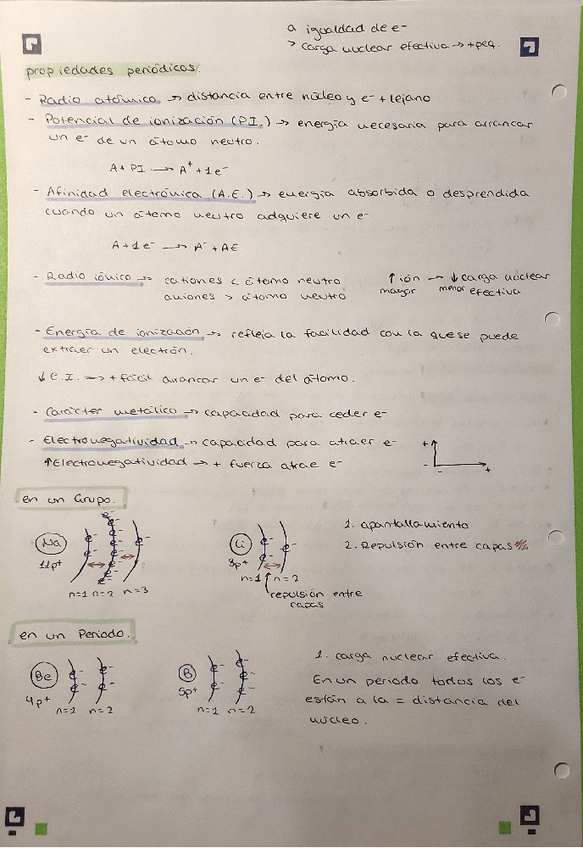 a igualdad de e-
> carga nuclear efectiva → + peq.
propiedades periódicas.
- Radio atómico → distancia entre núcleo y e- + lejano
- Potencial de ionización (P.I.) → energía necesaria para arrancar
un e- de un átomo neutro.
A + PI → A+ + 1e-
- Afinidad electrónica (A.E.) → energía absorbida o desprendida
cuando un átomo neutro adquiere un e-
A + 1e- → A- + AE
- Radio iónico → cationes < átomo neutro ↑ ión → ↓ carga nuclear
aniones > átomo neutro mayor menor efectiva
- Energía de ionización → refleja la facilidad con la que se puede
extraer un electrón.
↓ E.I. → + fácil arrancar un e- del átomo.
- Carácter metálico → capacidad para ceder e-
- Electronegatividad → capacidad para atraer e- +
↑ Electronegatividad → + fuerza atrae e- - +
en un Grupo.
Na Li 1. apantallamiento
11p+ 3p+ 2. Repulsión entre capas
n=1 n=2 n=3 n=1 n=2
repulsión entre
capas
en un Periodo.
Be B 1. carga nuclear efectiva.
4p+ 5p+ En un periodo todos los e-
n=1 n=2 n=1 n=2 están a la = distancia del
núcleo.